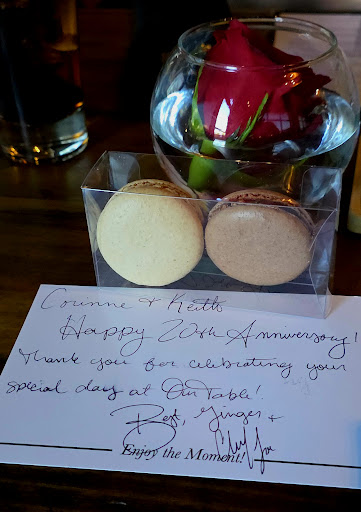 Corinne + Keith
Happy 20th Anniversary!
Thank you for celebrating your
special day at OurTable!
Best, Ginger +
Chef Joe
Enjoy the Moment!